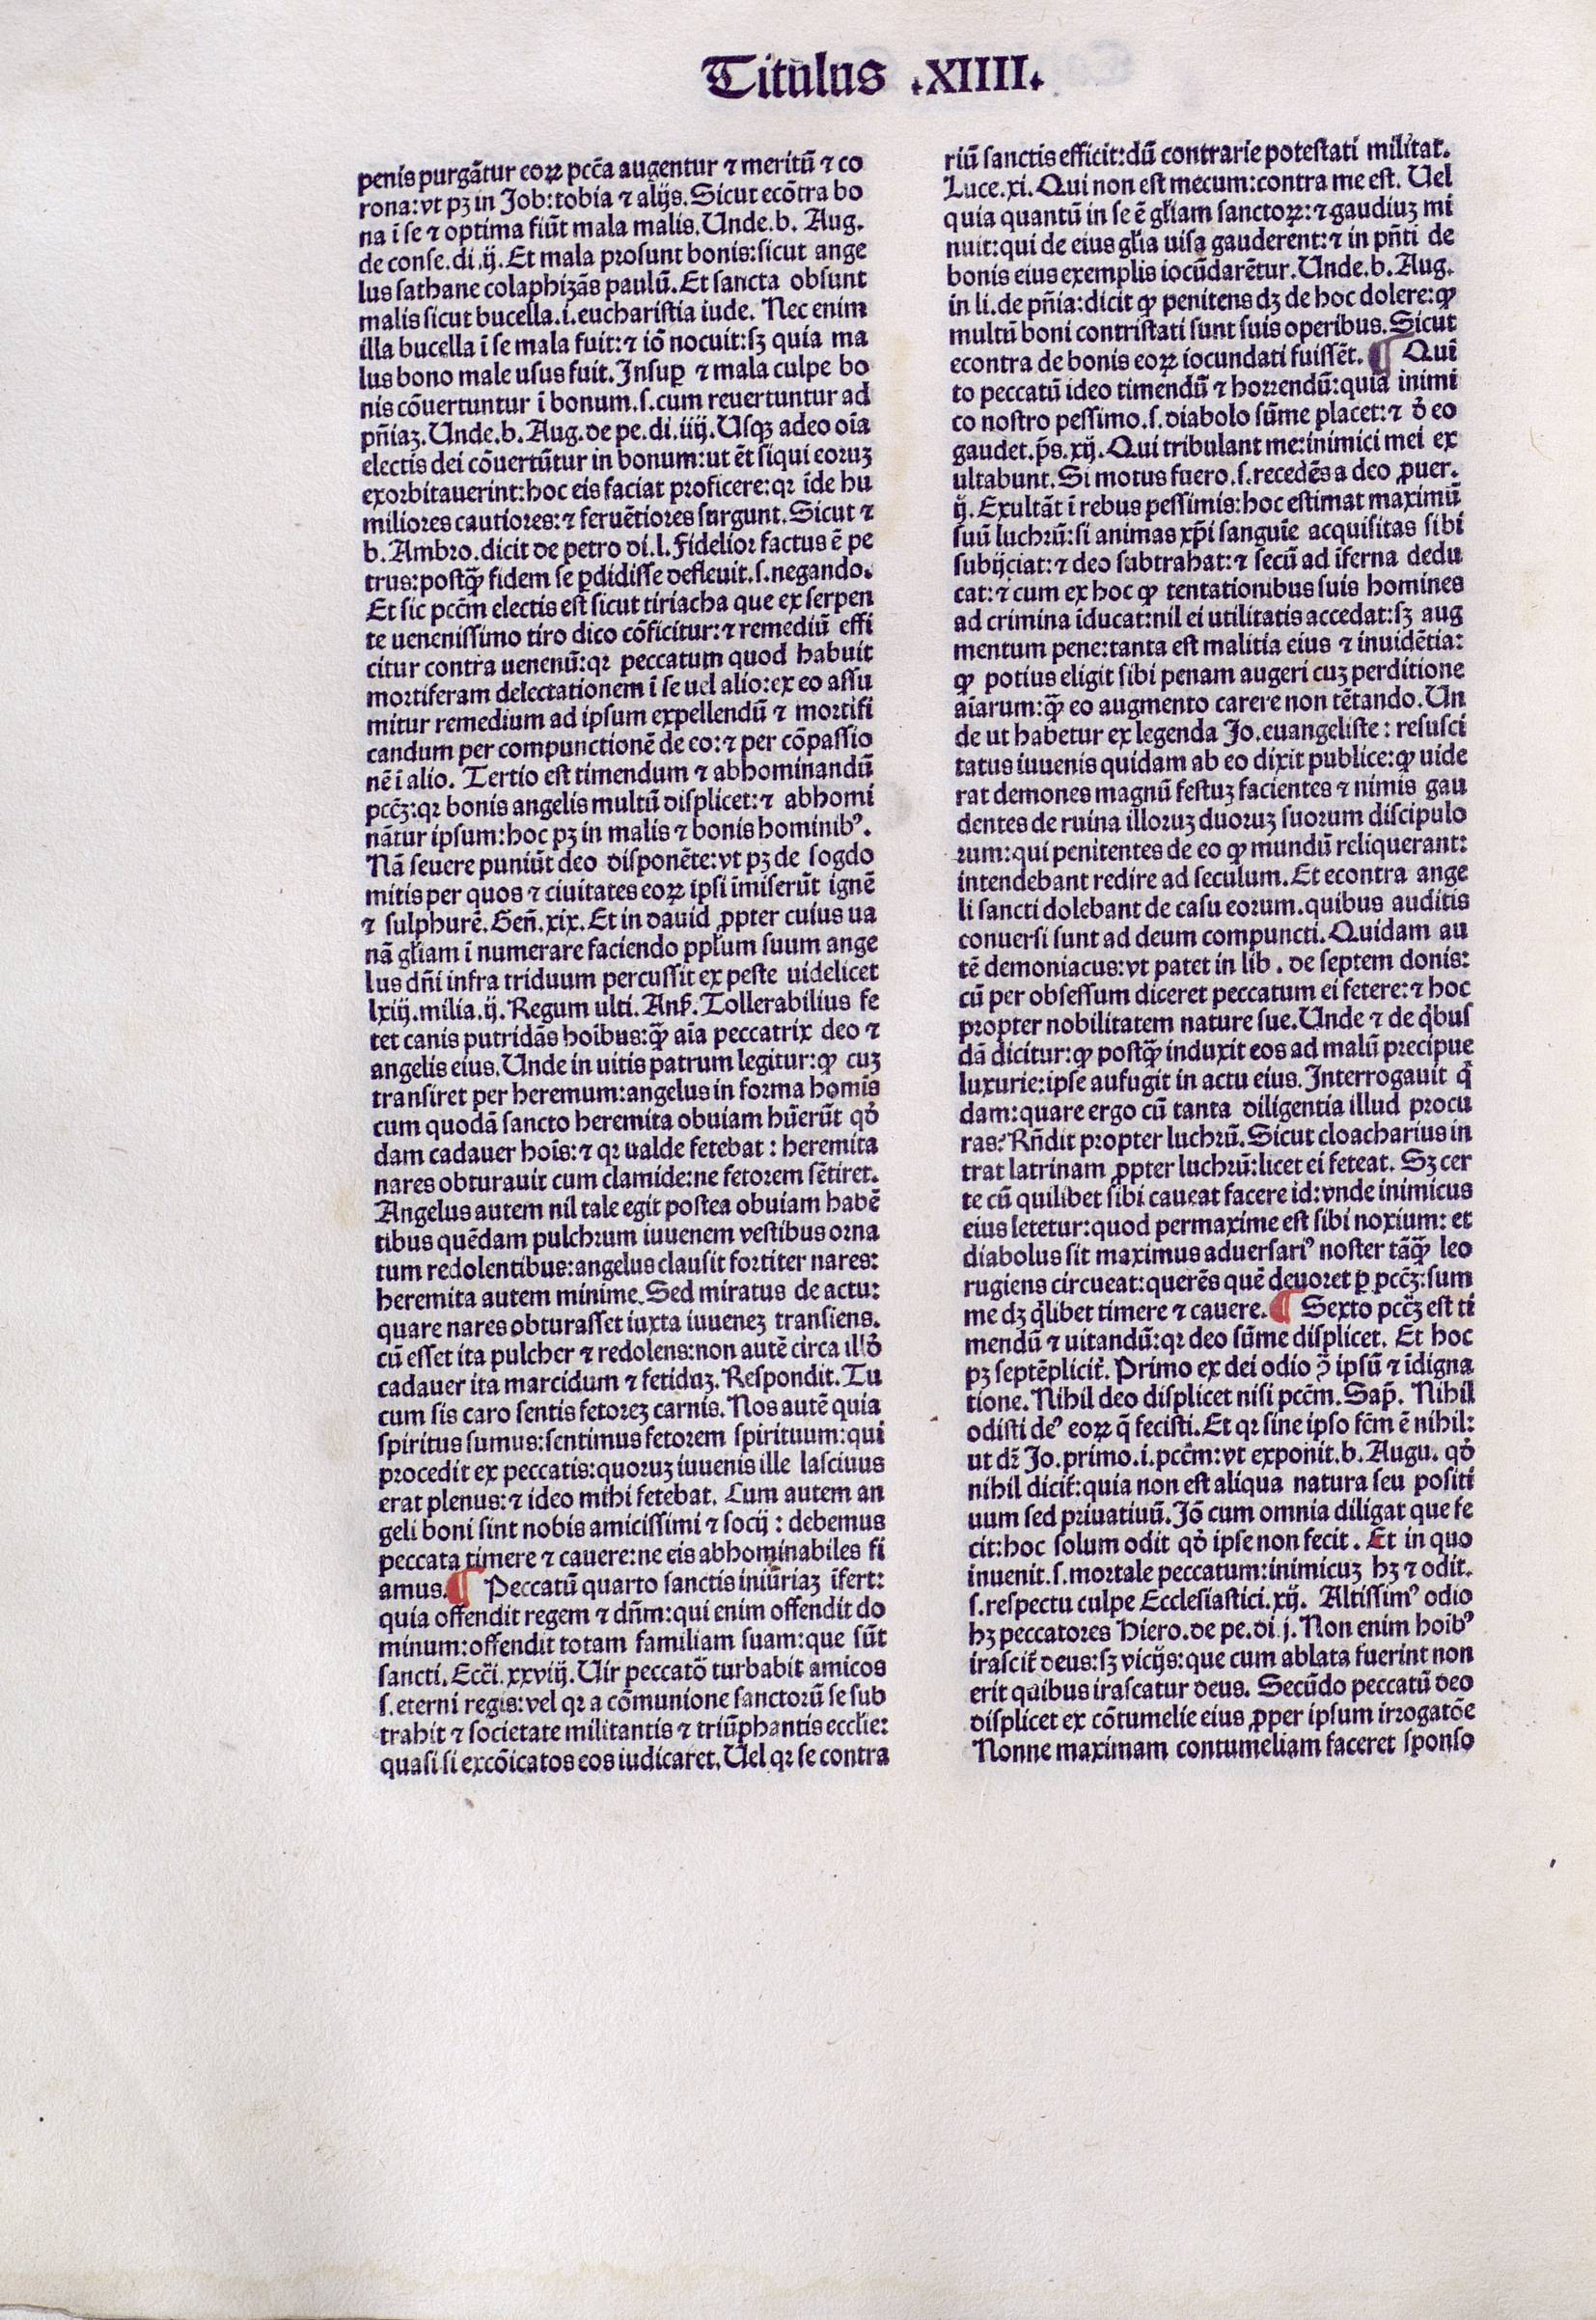 Titulus .XIIII.
penis purgãtur eoꝝ pcc̃a augentur ⁊ meritũ ⁊ co
rona:vt pꝫ in Job:tobia ⁊ alijs. Sicut ecõtra bo
na ĩ se ⁊ optima fiũt mala malis. Unde.b. Aug.
de conse.di.ij. Et mala prosunt bonis:sicut ange
lus sathane colaphizãs paulũ. Et sancta obsunt
malis sicut bucella.i.eucharistia iude. Nec enim
illa bucella ĩ se mala fuit:⁊ iõ nocuit:sꝫ quia ma
lus bono male usus fuit. Insuꝑ ⁊ mala culpe bo
nis cõuertuntur ĩ bonum.s.cum reuertuntur ad
pñiaꝫ. Unde.b. Aug. de pe.di.iiij. Usqꝫ adeo oĩa
electis dei cõuertũtur in bonum:ut ẽt siqui eoruꝫ
exorbitauerint:hoc eis faciat proficere:qꝛ ĩde hu
miliores cautiores:⁊ feruẽtiores surgunt. Sicut ⁊
b. Ambro. dicit de petro di.l. Fidelior factus ẽ pe
trus:postꝙ̃ fidem se ꝑdidisse defleuit.s.negando.
Et sic pccm̃ electis est sicut tiriacha que ex serpen
te uenenissimo tiro dico cõficitur:⁊ remediũ effi
citur contra uenenũ:qꝛ peccatum quod habuit
mortiferam delectationem ĩ se uel alio:ex eo assu
mitur remedium ad ipsum expellendũ ⁊ mortifi
candum per compunctionẽ de eo:⁊ per cõpassio
nẽ ĩ alio. Tertio est timendum ⁊ abhominandũ
pcc̃ꝫ:qꝛ bonis angelis multũ displicet:⁊ abhomi
nãtur ipsum:hoc pꝫ in malis ⁊ bonis hominibꝰ.
Nã seuere puniũt deo disponẽte:vt pꝫ de sogdo
mitis per quos ⁊ ciuitates eoꝝ ipsi ĩmiserũt ignẽ
⁊ sulphurẽ. Geñ.xix. Et in dauid ꝓpter cuius ua
nã gl̃iam ĩ numerare faciendo ppl̃um suum ange
lus dñi infra triduum percussit ex peste uidelicet
lxiij.milia.ij. Regum ulti. Ans̃. Tollerabilius fe
tet canis putridãs hoĩbus:ꝙ̃ aĩa peccatrix deo ⁊
angelis eius. Unde in uitis patrum legitur:ꝙ cuꝫ
transiret per heremum:angelus in forma homĩs
cum quodã sancto heremita obuiam hũerũt qđ
dam cadauer hoĩs:⁊ qꝛ ualde fetebat : heremita
nares obturauit cum clamide:ne fetorem sẽtiret.
Angelus autem nil tale egit postea obuiam habẽ
tibus quẽdam pulchrum iuuenem vestibus orna
tum redolentibus:angelus clausit fortiter nares:
heremita autem minime. Sed miratus de actu:
quare nares obturasset iuxta iuuenez transiens.
cũ esset ita pulcher ⁊ redolens:non autẽ circa illđ
cadauer ita marcidum ⁊ fetiduꝫ. Respondit. Tu
cum sis caro sentis fetoreꝫ carnis. Nos autẽ quia
spiritus sumus:sentimus fetorem spirituum:qui
procedit ex peccatis:quoruꝫ iuuenis ille lasciuus
erat plenus:⁊ ideo mihi fetebat. Cum autem an
geli boni sint nobis amicissimi ⁊ socij : debemus
peccata timere ⁊ cauere:ne eis abhominabiles fi
amus. ¶ Peccatũ quarto sanctis iniuriaꝫ ĩfert:
quia offendit regem ⁊ dñm:qui enim offendit do
minum:offendit totam familiam suam:que sũt
sancti. Ecc̃i.xxviij. Uir peccatõ turbabit amicos
s.eterni regis:vel qꝛ a cõmunione sanctorũ se sub
trahit ⁊ societate militantis ⁊ triũphantis eccl̃ie:
quasi si excõicatos eos iudicaret. Uel qꝛ se contra
riũ sanctis efficit:dũ contrarie potestati militat.
Luce.xi. Qui non est mecum:contra me est. Uel
quia quantũ in se ẽ gl̃iam sanctoꝝ:⁊ gaudiuꝫ mi
nuit:qui de eius gl̃ia uisa gauderent:⁊ in pñti de
bonis eius exemplis iocũdarẽtur. Unde.b. Aug.
in li.de pñia:dicit ꝙ penitens dꝫ de hoc dolere:ꝙ
multũ boni contristati sunt suis operibus. Sicut
econtra de bonis eoꝝ iocundati fuissẽt. ¶ Quĩ
to peccatũ ideo timendũ ⁊ horrendũ:quia inimi
co nostro pessimo.s.diabolo sũme placet:⁊ đ eo
gaudet.p̃s.xij. Qui tribulant me:inimici mei ex
ultabunt. Si motus fuero.s.recedẽs a deo ꝓuer.
ij. Exultãt ĩ rebus pessimis:hoc estimat maximũ
suũ luchrũ:si animas xp̃i sanguĩe acquisitas sibi
subijciat:⁊ deo subtrahat:⁊ secũ ad ĩferna dedu
cat:⁊ cum ex hoc ꝙ tentationibus suis homines
ad crimina ĩducat:nil ei utilitatis accedat:sꝫ aug
mentum pene:tanta est malitia eius ⁊ inuidẽtia:
ꝙ potius eligit sibi penam augeri cuꝫ perditione
aĩarum:ꝙ̃ eo augmento carere non tẽtando. Un
de ut habetur ex legenda Jo.euangeliste : resusci
tatus iuuenis quidam ab eo dixit publice:ꝙ uide
rat demones magnũ festuꝫ facientes ⁊ nimis gau
dentes de ruina illoruꝫ duoruꝫ suorum discipulo
rum:qui penitentes de eo ꝙ mundũ reliquerant:
intendebant redire ad seculum. Et econtra ange
li sancti dolebant de casu eorum.quibus auditis
conuersi sunt ad deum compuncti. Quidam au
tẽ demoniacus:vt patet in lib . de septem donis:
cũ per obsessum diceret peccatum ei fetere:⁊ hoc
propter nobilitatem nature sue. Unde ⁊ de q̃bus
dã dicitur:ꝙ postꝙ̃ induxit eos ad malũ precipue
luxurie:ipse aufugit in actu eius. Interrogauit q̃
dam:quare ergo cũ tanta diligentia illud procu
ras? Rñdit propter luchrũ. Sicut cloacharius in
trat latrinam ꝓpter luchrũ:licet ei feteat. Sꝫ cer
te cũ quilibet sibi caueat facere id:vnde inimicus
eius letetur:quod permaxime est sibi noxium: et
diabolus sit maximus aduersariꝰ noster tãꝙ̃ leo
rugiens circueat:querẽs quẽ deuoret ꝑ pcc̃ꝫ:sum
me dꝫ q̃libet timere ⁊ cauere. ¶ Sexto pcc̃ꝫ est ti
mendũ ⁊ uitandũ:qꝛ deo sũme displicet. Et hoc
pꝫ septẽplicit̃. Primo ex dei odio ꝯ̃ ipsũ ⁊ ĩdigna
tione. Nihil deo displicet nisi pccm̃. Sap̃. Nihil
odisti deꝰ eoꝝ q̃ fecisti. Et qꝛ sine ipso fcm̃ ẽ nihil:
ut dr̃ Jo.primo.i.pccm̃:vt exponit.b. Augu. qđ
nihil dicit̃:quia non est aliqua natura seu positi
uum sed priuatiuũ. Jõ cum omnia diligat que fe
cit:hoc solum odit qđ ipse non fecit . Et in quo
inuenit.s.mortale peccatum:inimicuꝫ hꝫ ⁊ odit.
s.respectu culpe Ecclesiastici.xij. Altissimꝰ odio
hꝫ peccatores Hiero.de pe.di.j. Non enim hoĩbꝰ
irascit̃ deus:sꝫ vicijs:que cum ablata fuerint non
erit quibus irascatur deus. Secũdo peccatũ deo
displicet ex cõtumelie eius ꝓpper ipsum irrogatõe
Nonne maximam contumeliam faceret sponso